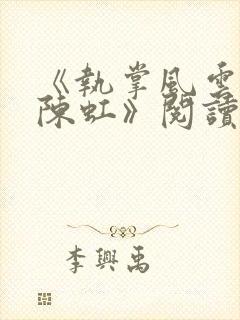 《執掌風雲
陳虹》閱讀
李興禹